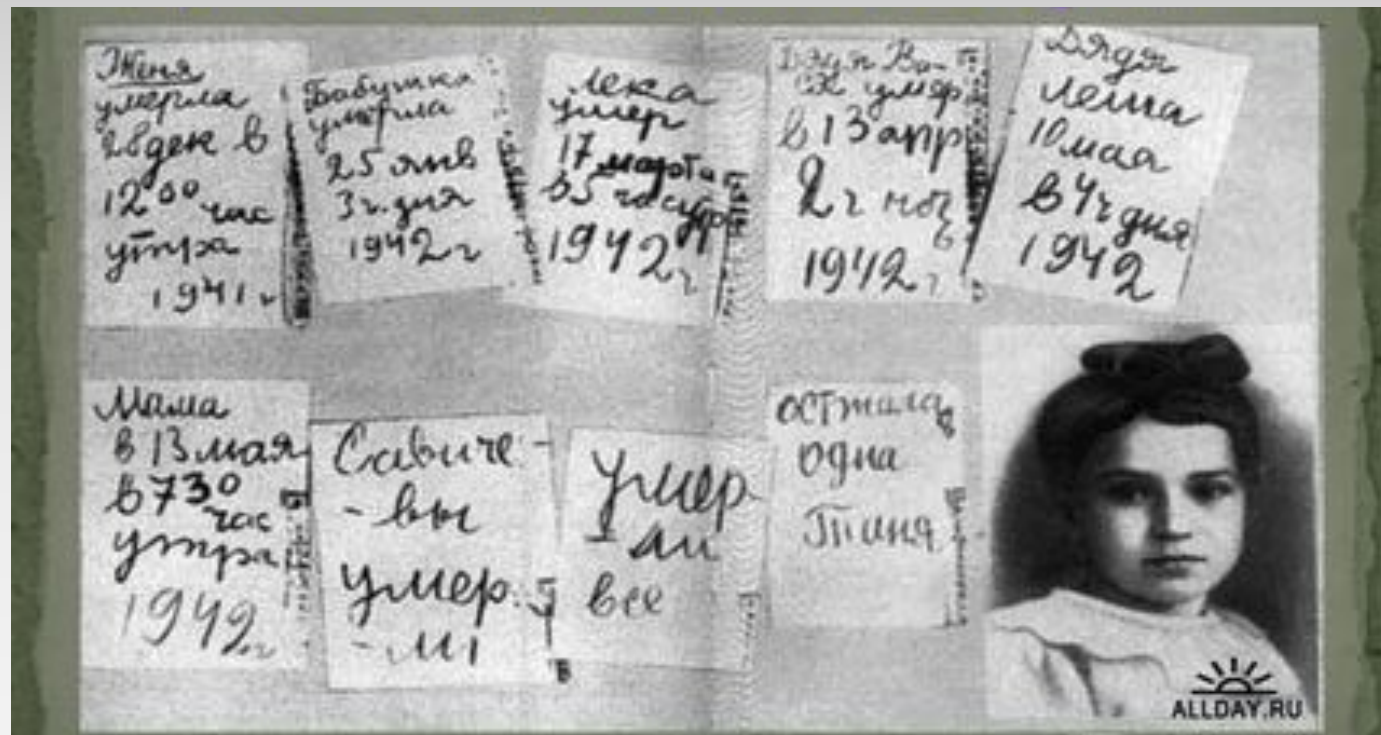 Женя
умерла
28 ден в
12 00 час
утра
1941 г
Бабушка
умерла
25 янв
3 ч. дня
1942 г
Лека
умер
17 марта
в 5 час утр
1942 г
Дядя Ва-
ся умер
в 13 апр
2 ч ноч
1942 г
Дядя
Леша
10 мая
в 4 ч дня
1942
Мама
в 13 мая
в 7 30
час
утра
1942 г
Савиче-
-вы
умер
-ли
Умер
-ли
все
осталась
одна
Таня
ALLDAY.RU